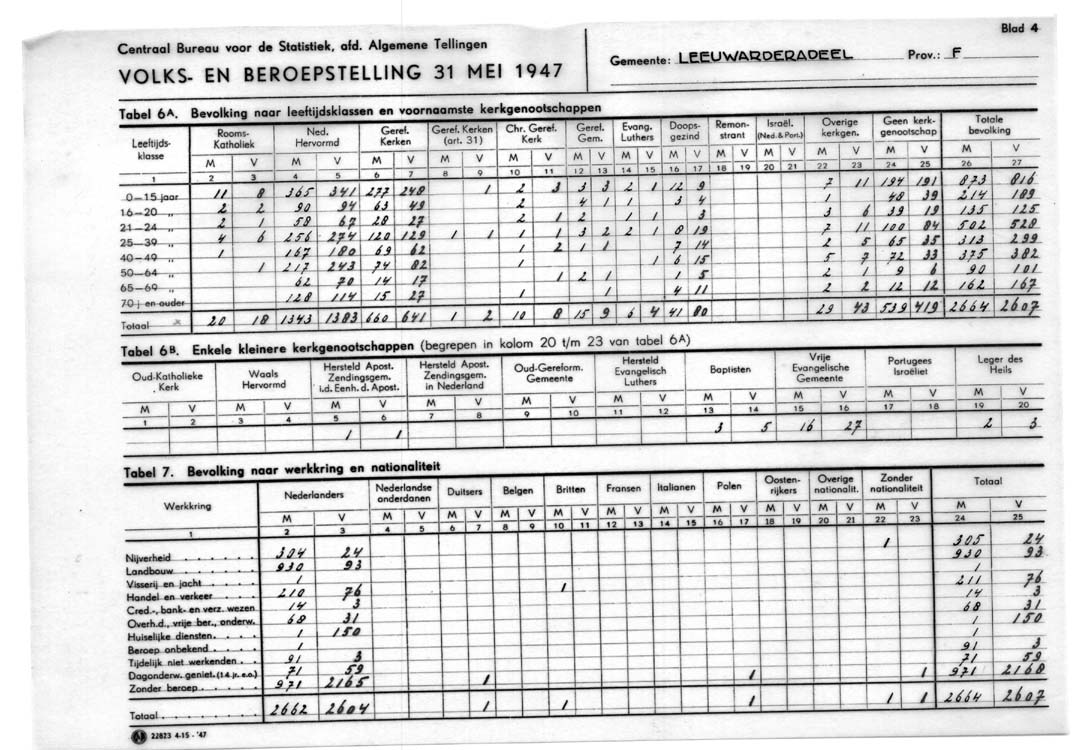 Blad 4
Centraal Bureau voor de Statistiek, afd. Algemene Tellingen
VOLKS- EN BEROEPSTELLING 31 MEI 1947
Gemeente: LEEUWARDERADEEL Prov.: F
Tabel 6A. Bevolking naar leeftijdsklassen en voornaamste kerkgenootschappen
Leeftijds-klasse Rooms-Katholiek Ned. Hervormd Geref. Kerken Geref. Kerken (art. 31) Chr. Geref. Kerk Geref. Gem. Evang. Luthers Doops-gezind Remon-strant Israël. (Ned. & Port.) Overige kerkgen. Geen kerk-genootschap Totale bevolking
M V M V M V M V M V M V M V M V M V M V M V M V M V
1 2 3 4 5 6 7 8 9 10 11 12 13 14 15 16 17 18 19 20 21 22 23 24 25 26 27
0—15 jaar 11 8 365 341 277 248 1 2 3 3 3 2 1 12 9 7 11 194 191 873 816
16—20 „ 2 2 90 94 63 49 2 4 1 1 3 4 1 48 39 214 189
21—24 „ 2 1 58 67 28 27 2 1 2 1 1 3 3 6 39 19 135 125
25—39 „ 4 6 256 274 120 129 1 1 1 1 3 2 2 1 8 19 7 11 100 84 502 528
40—49 „ 1 167 180 69 62 1 2 1 1 7 14 2 5 65 35 313 299
50—64 „ 1 217 243 74 82 1 1 6 15 5 7 72 33 375 382
65—69 „ 62 70 14 17 1 2 1 1 5 2 1 9 6 90 101
70 j en ouder 128 114 15 27 1 1 4 11 2 2 12 12 162 167
Totaal 20 18 1343 1383 660 641 1 2 10 8 15 9 6 4 41 80 29 43 539 419 2664 2607
Tabel 6B. Enkele kleinere kerkgenootschappen (begrepen in kolom 20 t/m 23 van tabel 6A)
Oud-Katholieke Kerk Waals Hervormd Hersteld Apost. Zendingsgem. i.d. Eenh. d. Apost. Hersteld Apost. Zendingsgem. in Nederland Oud-Gereform. Gemeente Hersteld Evangelisch Luthers Baptisten Vrije Evangelische Gemeente Portugees Israëliet Leger des Heils
M V M V M V M V M V M V M V M V M V M V
1 2 3 4 5 6 7 8 9 10 11 12 13 14 15 16 17 18 19 20
1 1 3 5 16 27 2 3
Tabel 7. Bevolking naar werkkring en nationaliteit
Werkkring Nederlanders Nederlandse onderdanen Duitsers Belgen Britten Fransen Italianen Polen Oosten-rijkers Overige nationalit. Zonder nationaliteit Totaal
M V M V M V M V M V M V M V M V M V M V M V M V
1 2 3 4 5 6 7 8 9 10 11 12 13 14 15 16 17 18 19 20 21 22 23 24 25
Nijverheid . . . . . . 304 24 1 305 24
Landbouw . . . . . . 930 93 930 93
Visserij en jacht . . . . 1 1
Handel en verkeer . . . 210 76 1 211 76
Cred.-, bank- en verz. wezen 14 3 14 3
Overh.d., vrije ber., onderw. 68 31 68 31
Huiselijke diensten . . . . 1 150 1 150
Beroep onbekend . . . . 1 1
Tijdelijk niet werkenden . . 91 3 91 3
Dagonderw. geniet. (14 jr. e.o.) 71 59 71 59
Zonder beroep . . . . . 971 2165 1 1 1 971 2168
Totaal . . . . . . . . 2662 2604 1 1 1 1 1 2664 2607
22823 4-15 - '47